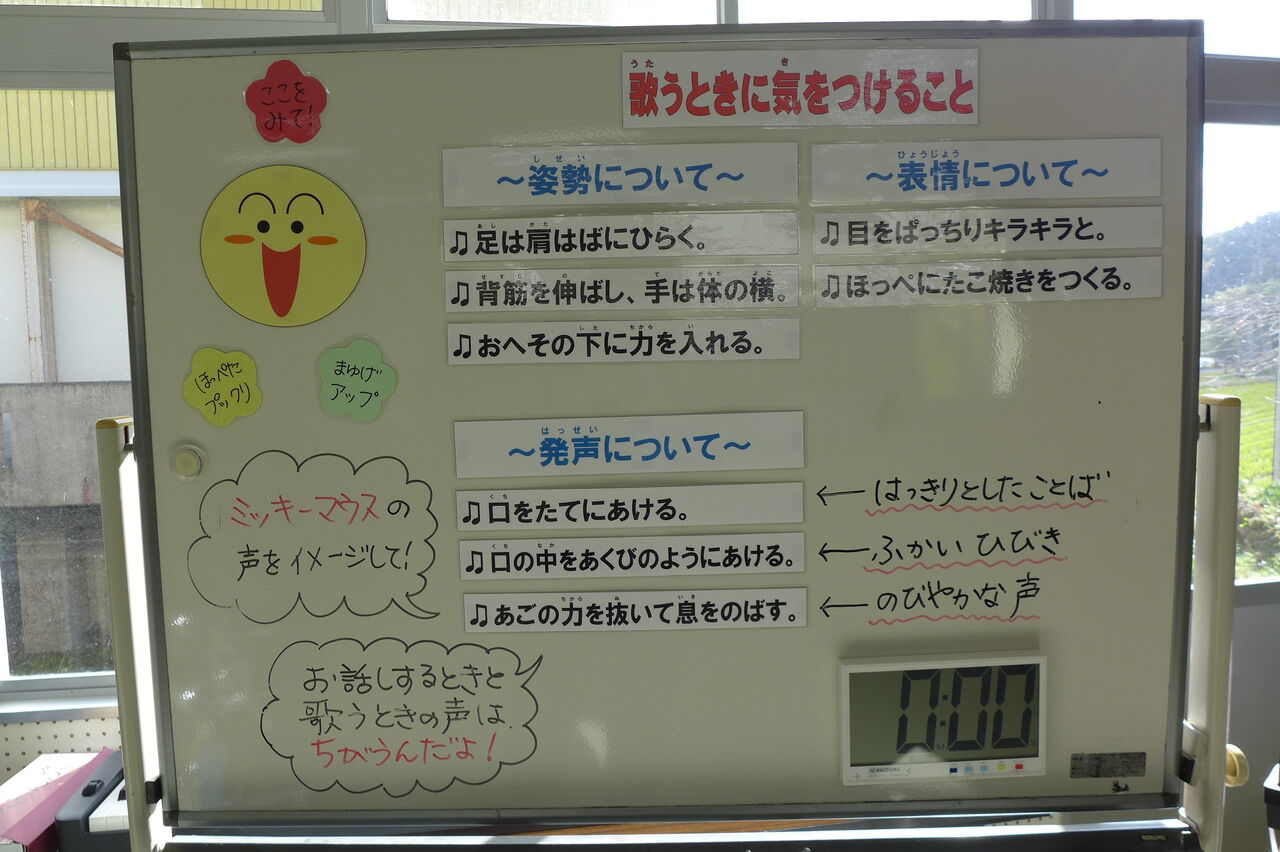 ここを
みて!
歌うときに気をつけること
うた
き
～姿勢について～
しせい
♫足は肩はばにひらく。
あし
かた
♫背筋を伸ばし、手は体の横。
せすじ
の
て
からだ
よこ
♫おへその下に力を入れる。
した
ちから
い
～表情について～
ひょうじょう
♫目をぱっちりキラキラと。
♫ほっぺにたこ焼きをつくる。
ほっぺた
プックリ
まゆげ
アップ
～発声について～
はっせい
♫口をたてにあける。
くち
←はっきりとしたことば
♫口の中をあくびのようにあける。
くち
なか
←ふかいひびき
♫あごの力を抜いて息をのばす。
ちから
ぬ
いき
←のびやかな声
ミッキーマウスの
声をイメージして!
お話しするときと
歌うときの声は
ちがうんだよ!
0:00